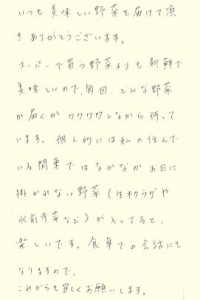 いつも美味しい野菜を届けて頂
きありがとうございます。
スーパーで買う野菜よりも新鮮で
美味しいので、毎回、どんな野菜
が届くかワクワクしながら待って
います。個人的には私の住んで
いる関東ではなかなかお目に
掛かれない野菜（生キクラゲや
水前寺菜など）が入ってると、
楽しいです。食卓での会話にも
なりますので、
これからも宜しくお願いします。